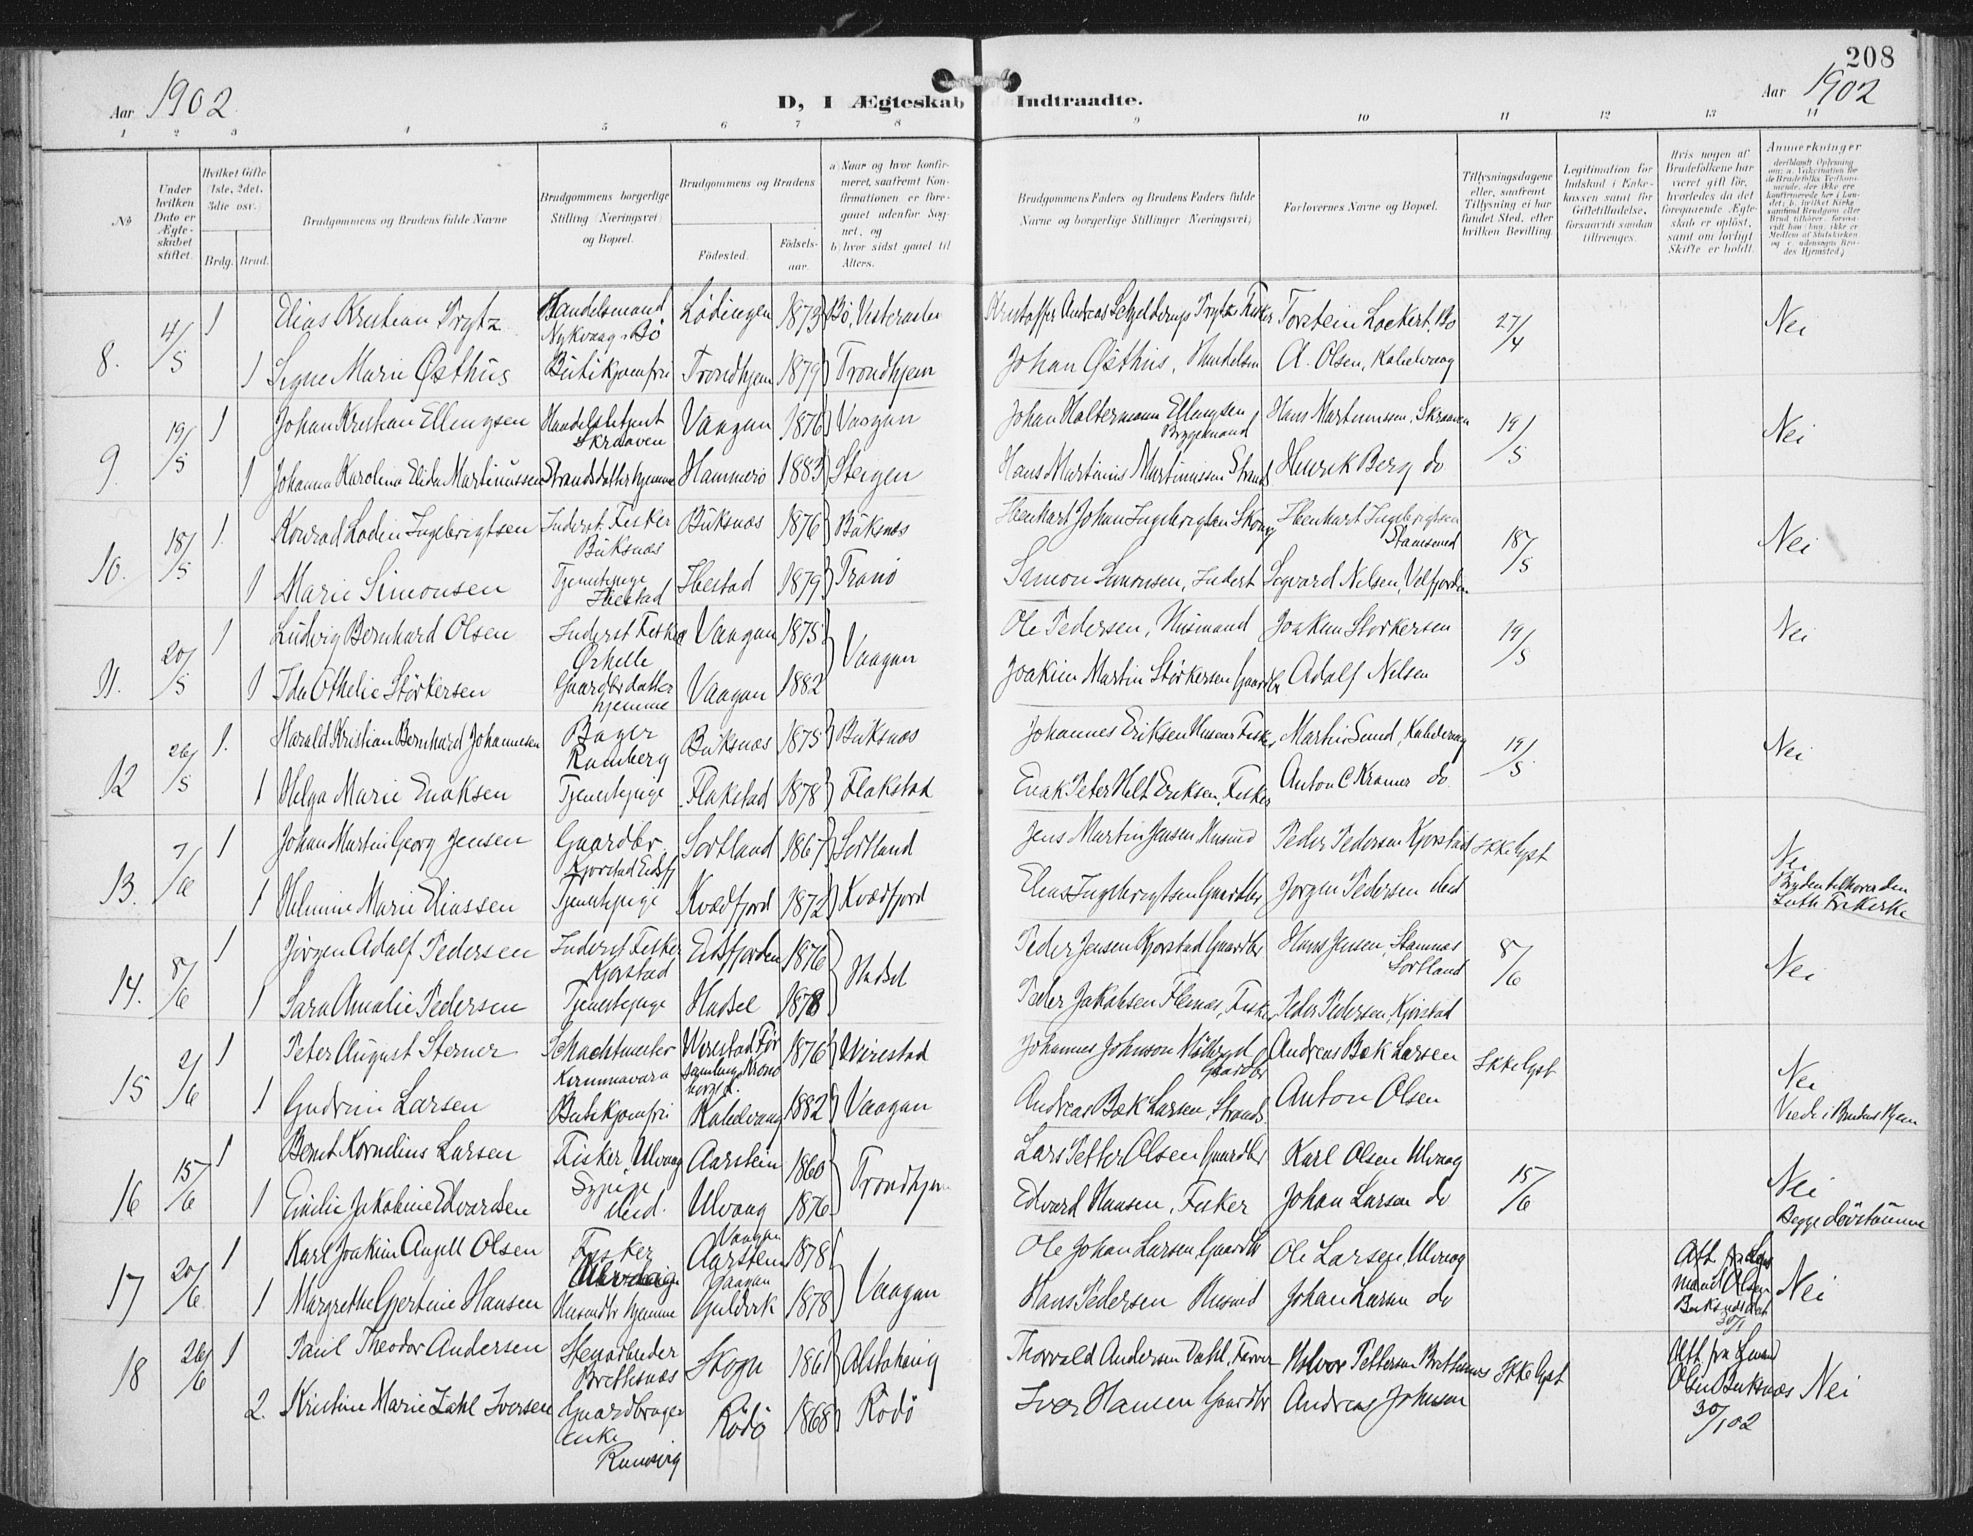 208
Aar 1902
D, I Ægteskab Indtraadte.
Aar 1902
1 2 3 4 5 6 7 8 9 10 11 12 13 14
No
Under hvilken Dato er Ægteskabet stiftet.
Hvilket Gifte 1ste, 2det, 3die osv.
Brdg. Brud.
Brudgommens og Brudens fulde Navne
Brudgommens borgerlige Stilling (Næringsvei) og Bopæl.
Brudgommens og Brudens
Fødested.
Fødselsaar.
a Naar og hvor konfirmeret, saafremt Konfirmationen er foregaaet udenfor Sognet, og
b hvor sidst gaaet til Alters.
Brudgommens Faders og Brudens Faders fulde Navne og borgerlige Stillinger (Næringsvei)
Forlovernes Navne og Bopæl.
Tillysningsdagene eller, saafremt Tillysning ei har fundet Sted, efter hvilken Bevilling.
Legitimation for Indskud i Enkekassen samt for Giftetilladelse, forsaavidt saadan tiltrænges.
Hvis nogen af Brudefolkene har været gift før, hvorledes da det foregaaende Ægteskab er opløst, samt om lovligt Skifte er holdt.
Anmerkninger
8. 4/5 1 Elias Kristian Prytz Handelsmand Nykvaag, Bø Lødingen 1873 Bø, Vesteraalen Torstein Lockert, Bø 27/4 Nei
1 Signe Marie Østhus Butikjomfru Trondhjem 1879 Trondhjem Johan Østhus, A. Olsen, Kabelvaag
9. 19/5 1 Johan Kristian Ellingsen Handelsbetjent Skraaven Vaagan 1876 Vaagan Johan Haltermann Ellingsen Hans Martinussen, Skraaven 19/5 Nei
1 Johanna Karolina Elida Martinussen Hammerø 1883 Steigen Hans Martinus Martinussen Strands Henrik Berg do
10. 18/5 1. Konrad Lodin Ingebrigtsen Inderst. Fisker Buksnæs Buksnæs 1876 Buksnæs Johan Ingebrigtsen Ingebrigtsen Stamsund 18/5 Nei
1 Marie Simonsen Tjenestepige Ibestad Ibestad 1879 Tranø Simon Simonsen, Inderst Sigvard Nilsen,
11. 20/5 1 Ludvig Bernhard Olsen Inderst Fisker Ørhelle Vaagan 1875 Vaagan Ole Pedersen, Husmand Joakim Størkersen 19/5 Nei
1 Ida Othelie Størkersen Gaardbr datter hjemme Vaagan 1882 Joakim Martin Størkersen Gaardbr Adolf Nilsen
12 26/5 1. Harald Kristian Bernhard Johannesen Bager Ramberg Buksnæs 1875 Buksnæs Johannes Eriksen Fisker Martin Sund, Kabelvaag 19/5 Nei
1 Helga Marie Enoksen Tjenestepige Flakstad 1878 Flakstad Enok Peter Hilt Eriksen, Fisker Anton C Kramer do
13. 7/6 1 Johan Martin Georg Jensen Gaardbr. Kjørstad Eidsfj Sortland 1867 Sortland Jens Martin Jensen Husmd Peder Pedersen Kjørstad Ikke lyst Nei
1 Helmine Marie Eliassen Tjenestepige Kvædfjord 1872 Kvædfjord Elias Ingebrigtsen Gaardbr Jørgen Pedersen ibid Bruden tilhører den Luth Frikirke
14. 8/6 1 Jørgen Adolf Pedersen Inderst Fisker Kjørstad Eidsfjorden 1876 Hadsel Peder Jensen Kjørstad Gaardbr Hans Jensen, Stamnæs Sortland 8/6 Nei
1 Sara Amalie Pedersen Tjenestepige Hadsel 1878 Peder Jakobsen Flæsnæs, Fisker Peder Pedersen, Kjørstad
15 2/6 1 Peter August Sterner Schachtmester Kirunnavara Wirestad För samling Krono bergs l. 1876 Wirestad Johannes Johnson Gaardbr Andreas Bæk Larsen Ikke lyst Nei
1 Gudrun Larsen Butikjomfru Kabelvaag 1882 Vaagan Andreas Bæk Larsen, Strands. Anton Olsen Viede i Brudens Hjem
16 15/6 1 Bernt Kornelius Larsen Fisker, Ulvaag Aarstein 1860 Trondhjem Lars Petter Olsen Gaardbr Karl Olsen Ulvaag 15/6 Nei
1 Emilie Jakobine Edvardsen Sypige ibid. Ulvaag 1876 Edvard Hansen, Fisker Johan Larsen do Begge døvstumme
17 20/6 1 Karl Joakim Angell Olsen Fisker Vaagan Aarstein 1878 Vaagan Ole Johan Larsen, Gaardbr Ole Larsen, Ulvaag Nei
1 Margrethe Gjertine Hansen hjemme Vaagan Gulvik 1878 Hans Pedersen Husmd Johan Larsen do
18 26/6 1 Paul Theodor Andersen Stenarbeider Brettesnæs Skogn 1861 Alstahaug Thorvald Andersen Dahl, Farver Halvor Pettersen Brettesnæs Ikke lyst Att. fra Lensmand Olsen Buksnæs 30/1 02 Nei
2. Kristine Marie Zahl Iversen Gaardbruger Enke Rødø 1868 Rødø Iver Hansen Gaardbr Andreas Johnsen